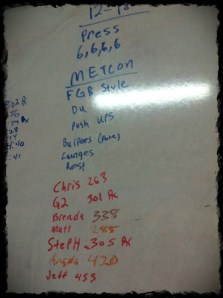 12-1
Press
6,6,6,6
METCON
FGB Style
Du
Push Ups
Burpees
Lunges
Rest
Chris 263
G2 301 Rx
Brenda 338
Matt 288
Steph 305 Rx
Angela 420
Jeff 455